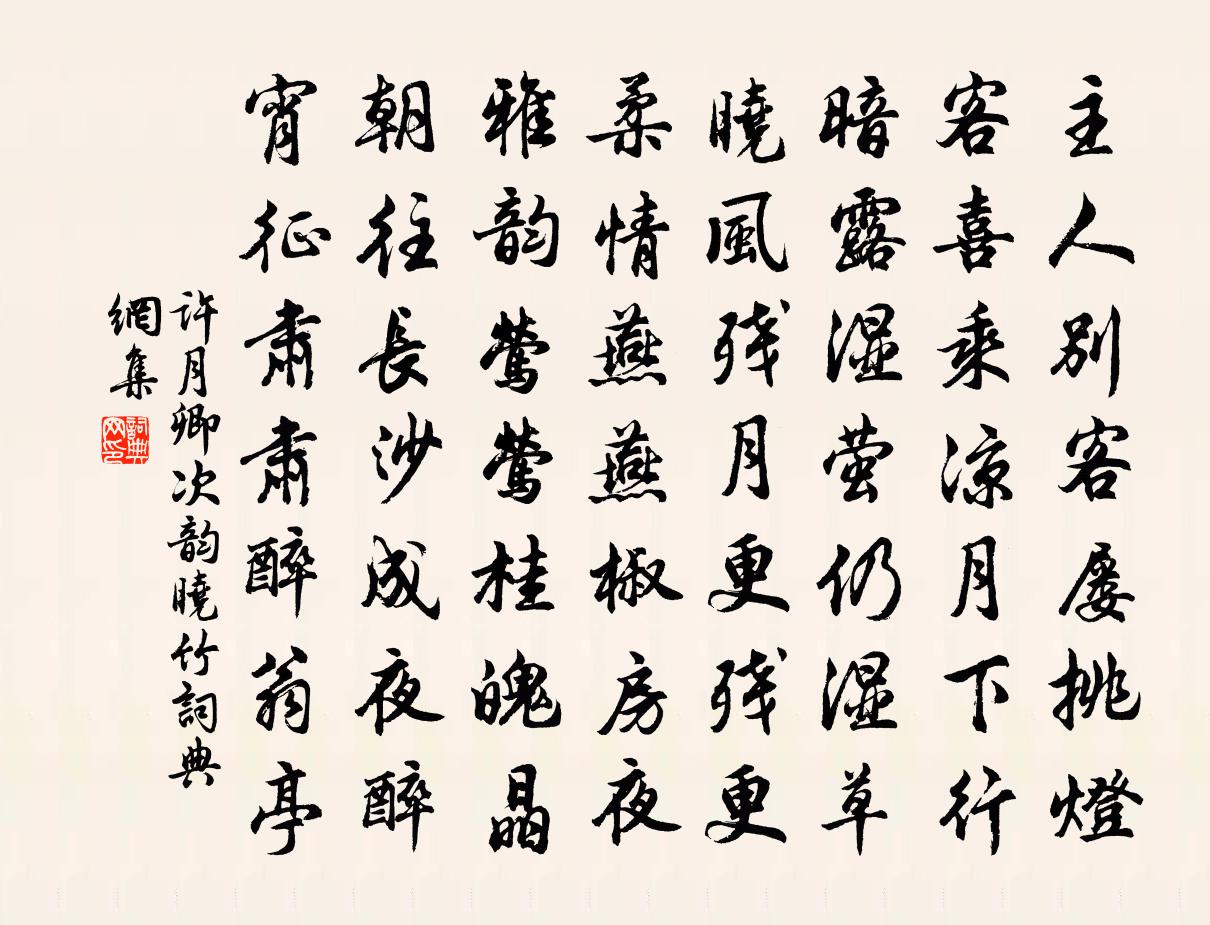 主人別客屡挑燈
客喜乘涼月下行
暗露湿萤仍湿草
曉風残月更残更
柔情燕燕椒房夜
雅韵莺莺桂魄晶
朝往長沙成夜醉
宵征肃肃醉翁亭
许月卿次韵曉竹詞典
網集
詞典网印